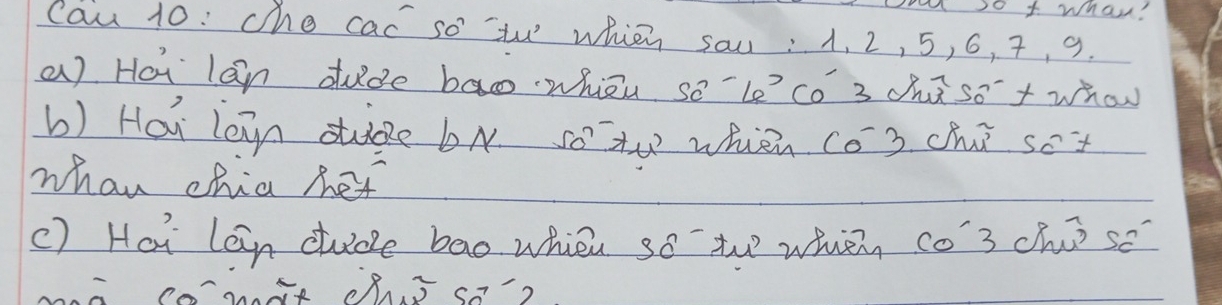 số ≠ nhau?
Câu 10: Cho các số tự nhiên sau: 1, 2, 5, 6, 7, 9.
a) Hỏi lập được bao nhiêu số lẻ có 3 chữ số ≠ nhau
b) Hỏi lập được bN số tự nhiên có 3 chữ số ≠
nhau chia hết
c) Hỏi lập được bao nhiêu số tự nhiên có 3 chữ số
mà có mặt chữ số 2